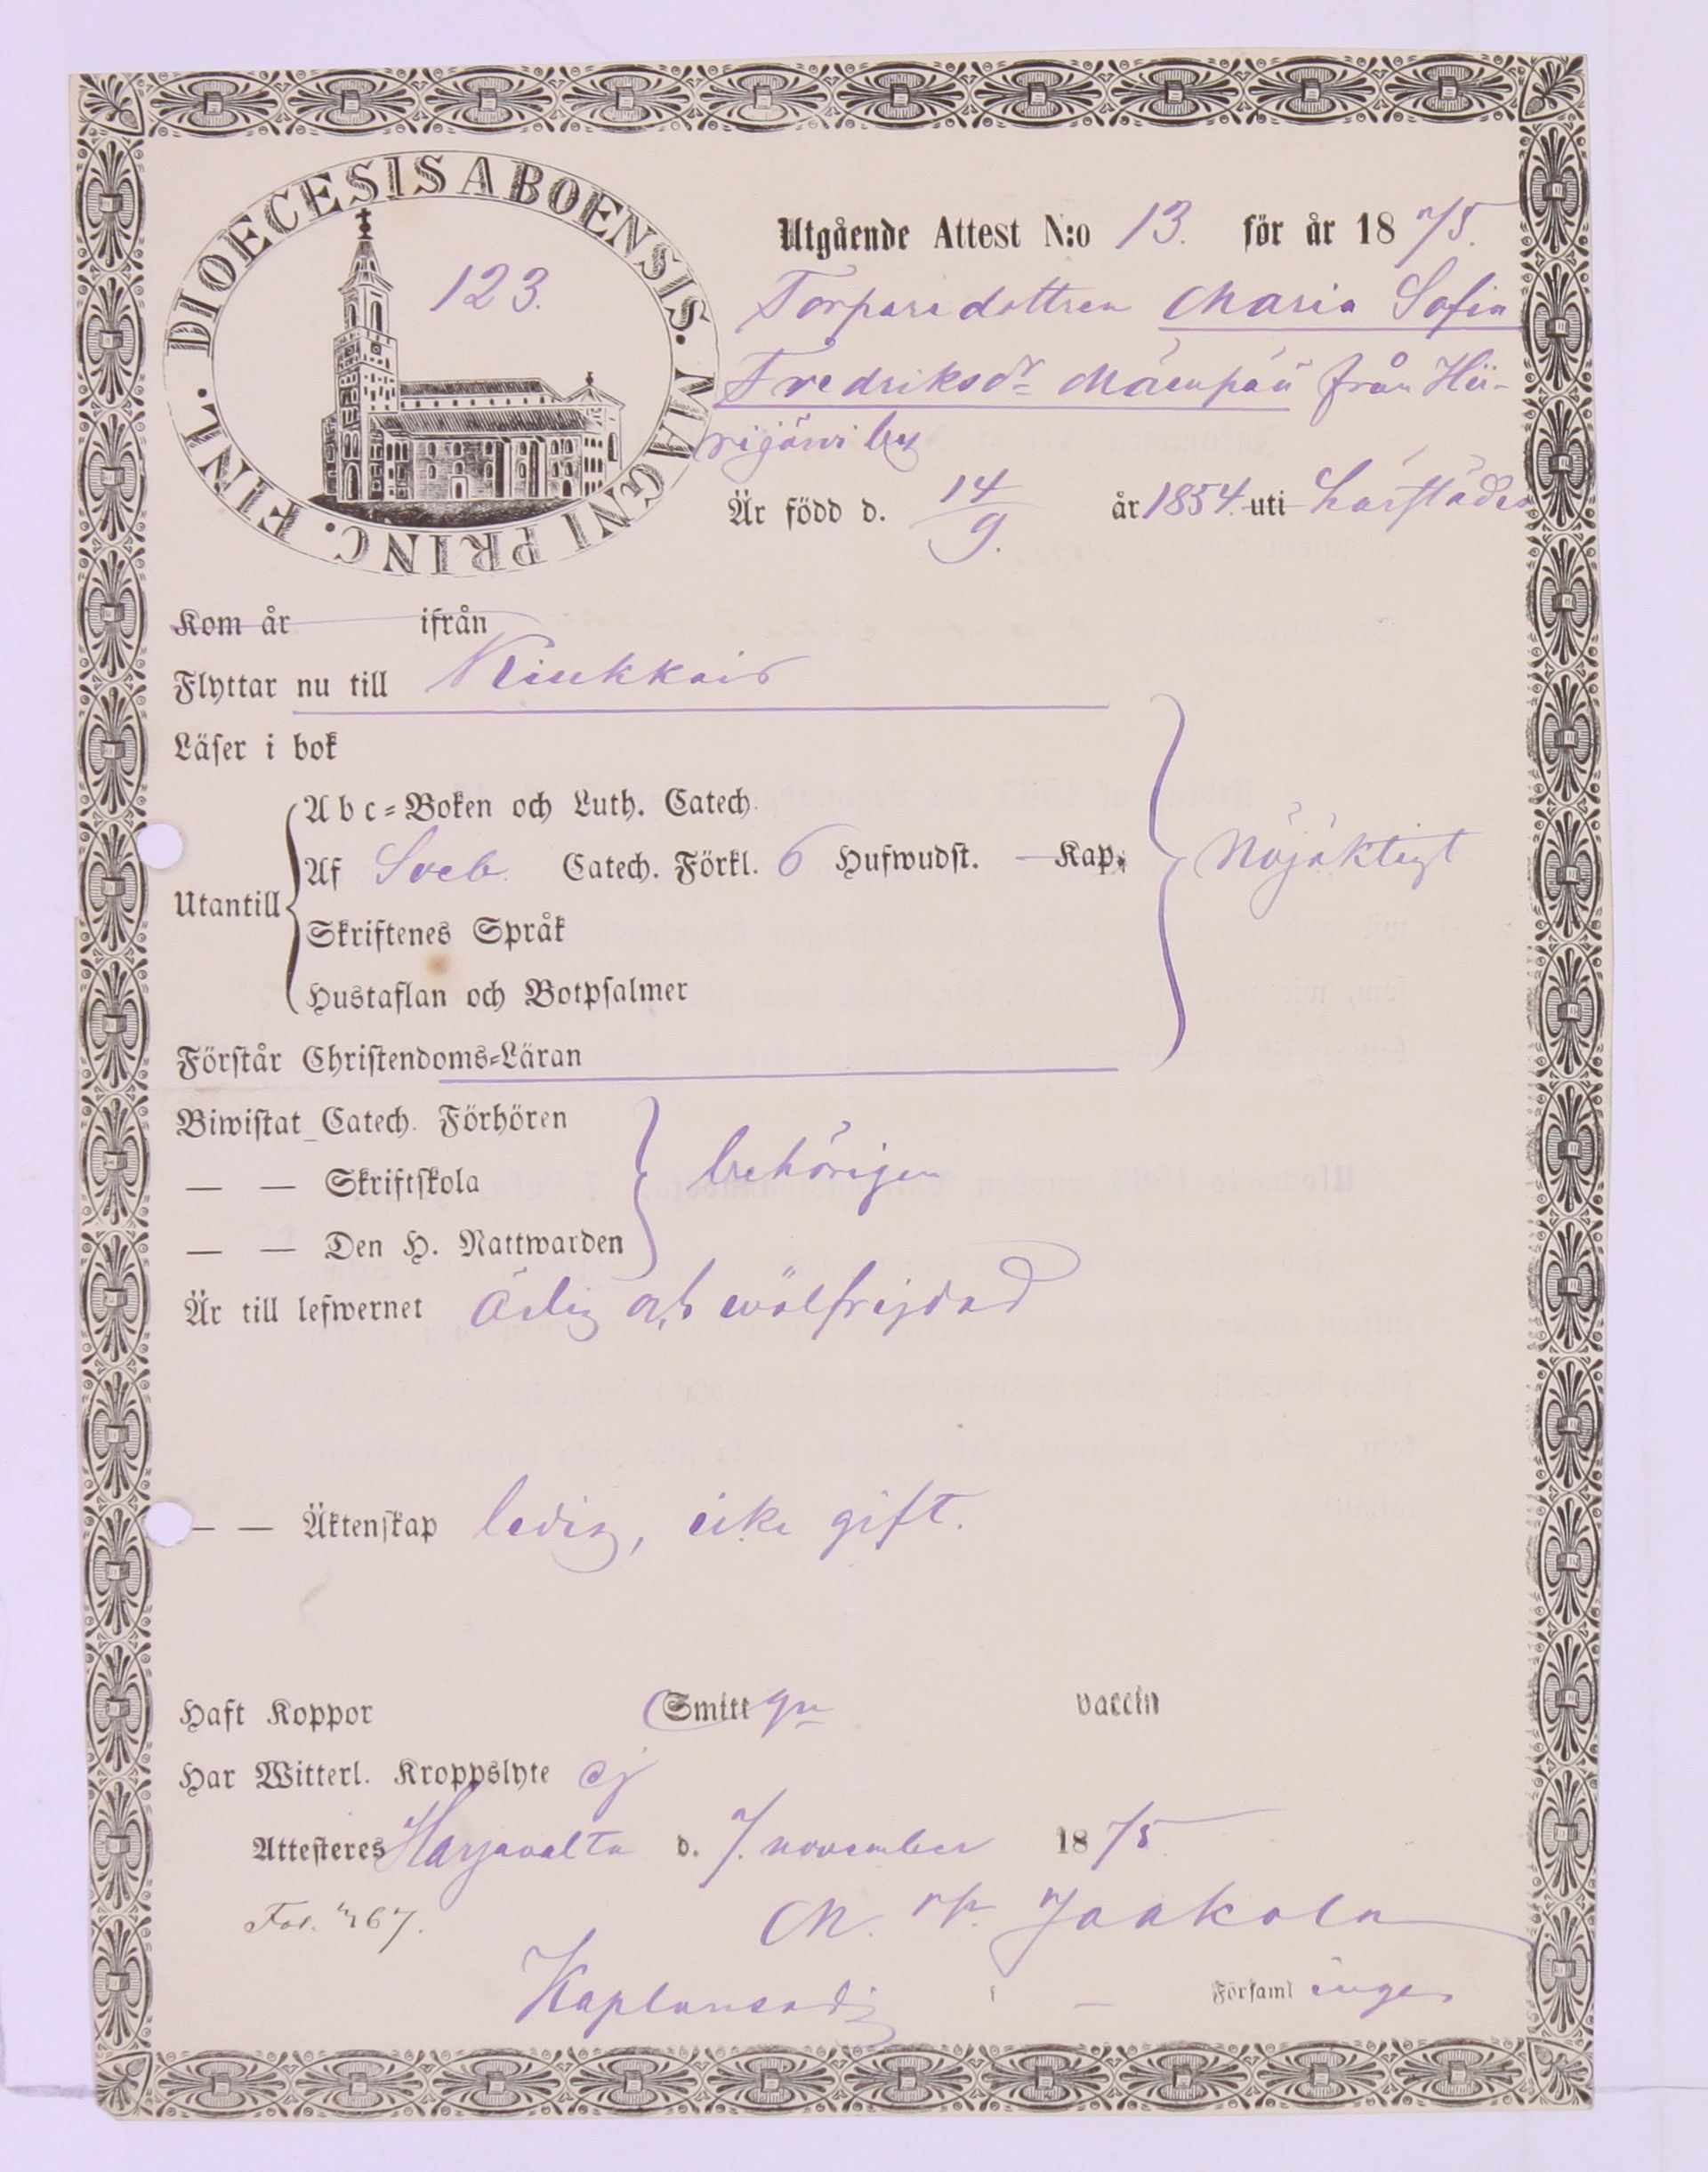 DIOECESIS ABOENSIS. MAGNI PRINC. FINL.
123.
Utgående Attest N:o 13. för år 1875.
Torparedottren Maria Sofia
Fredriksdr Mäenpää från Hii-
rijärvi by
Är född d. 14/9. år 1854. uti härstädes
Kom år ifrån
Flyttar nu till Kiukkais
Läser i bok
Utantill
Abc-Boken och Luth. Catech.
Af Sveb. Catech. Förkl. 6 Hufwudst. — Kap.
Nöjaktigt
Skriftenes Språk
Hustaflan och Botpsalmer
Förstår Christendoms-Läran
Biwistat Catech. Förhören
— — Skriftskola
behörigen
— — Den H. Nattwarden
Är till lefwernet Ärlig och wälfrejdad
— — Äktenskap ledig, icke gift.
Haft Koppor Smitt vaccin
Har Witterl. Kroppslyte ej
Attesteres Harjavalta d. 7. november 1875
Fol. 467.
Jaakola
Kaplansadj i — Församlingen